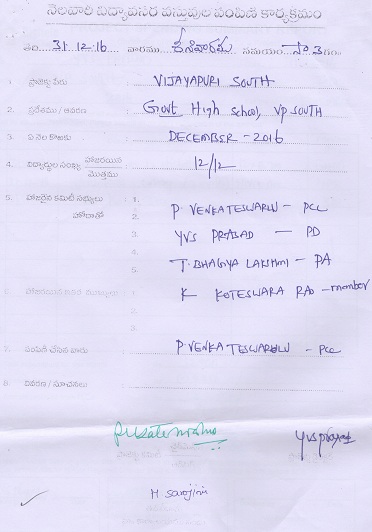 నెలవారీ విద్యావసర వస్తువుల పంపిణీ కార్యక్రమం
తేది 31.12.16 వారము శనివారము సమయం సా 3గం.
1. ప్రాజెక్టు పేరు VIJAYAPURI SOUTH
2. ప్రదేశము / ఆవరణ Govt High School, VP SOUTH
3. ఏ నెల కొరకు DECEMBER - 2016
4. విద్యార్థుల సంఖ్య హాజరయిన 12/12
మొత్తము
5. హాజరైన కమిటీ సభ్యులు 1.
హోదాతో 2. P. VENKATESWARLU - PCC
3. YVS PRASAD - PD
4.
5. T. BHAGYA LAKSHMI - PA
6. 1. K KOTESWARA RAO - member
2.
3.
7. పంపిణీ చేసిన వారు P. VENKATESWARLU - PCC
8. వివరణ / సూచనలు
M Sarojini